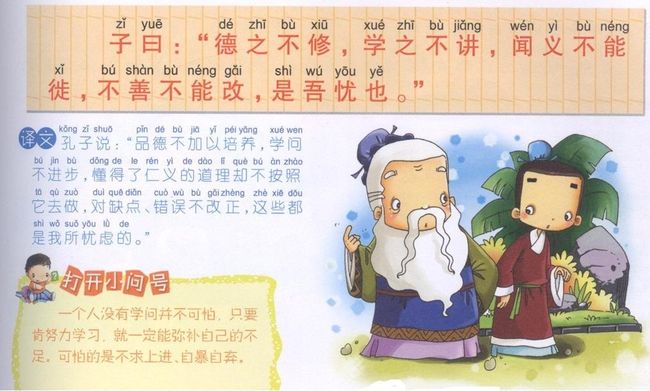 zǐ yuē dé zhī bù xiū xué zhī bù jiǎng wén yì bù néng
子曰：“德之不修，学之不讲，闻义不能
xǐ bú shàn bù néng gǎi shì wú yōu yě
徙，不善不能改，是吾忧也。”
kǒng zǐ shuō pǐn dé bù jiā yǐ péi yǎng xué wen
译文 孔子说：“品德不加以培养，学问
bú jìn bù dǒng de le rén yì de dào lǐ què bú àn zhào
不进步，懂得了仁义的道理却不按照
tā qù zuò duì quē diǎn cuò wù bù gǎi zhèng zhè xiē dōu
它去做，对缺点、错误不改正，这些都
shì wǒ suǒ yōu lǜ de
是我所忧虑的。”
打开小问号
一个人没有学问并不可怕，只要
肯努力学习，就一定能弥补自己的不
足。可怕的是不求上进、自暴自弃。